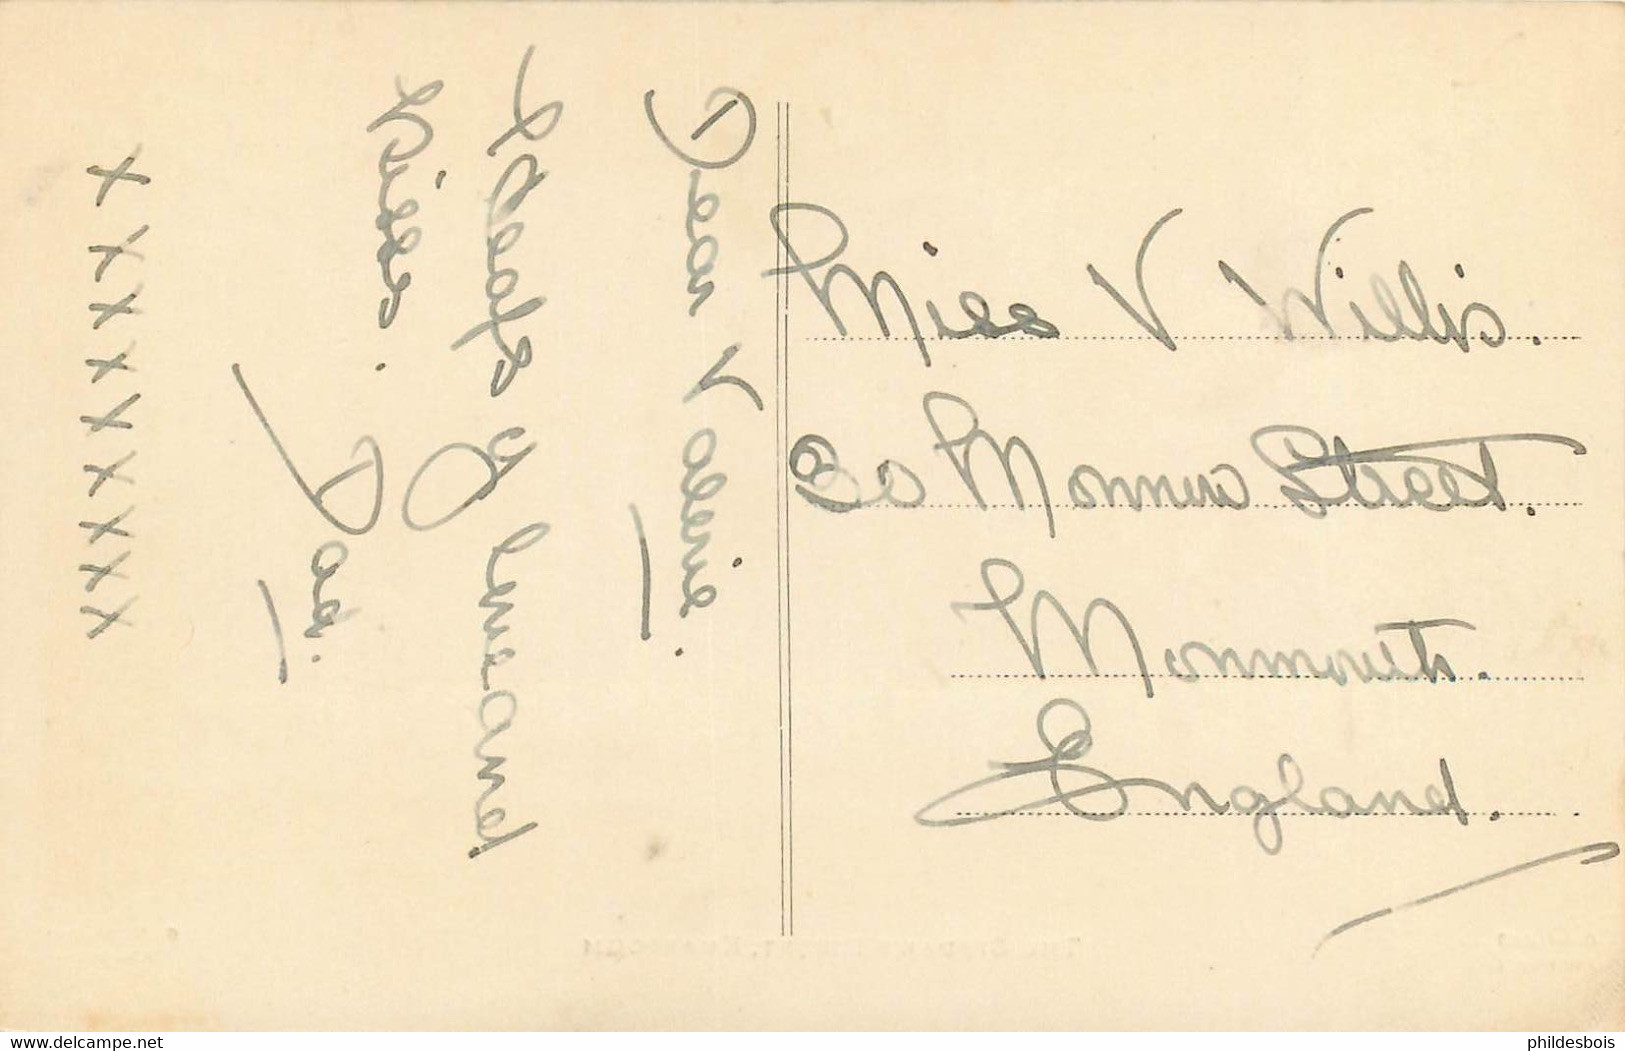 Dear Valerie.
Heaps of love and
kisses.
Dad.
x x x x x x x x x
Miss V Willis.
Monnow Street.
Monmouth.
England.
www.delcampe.net
phildesbois